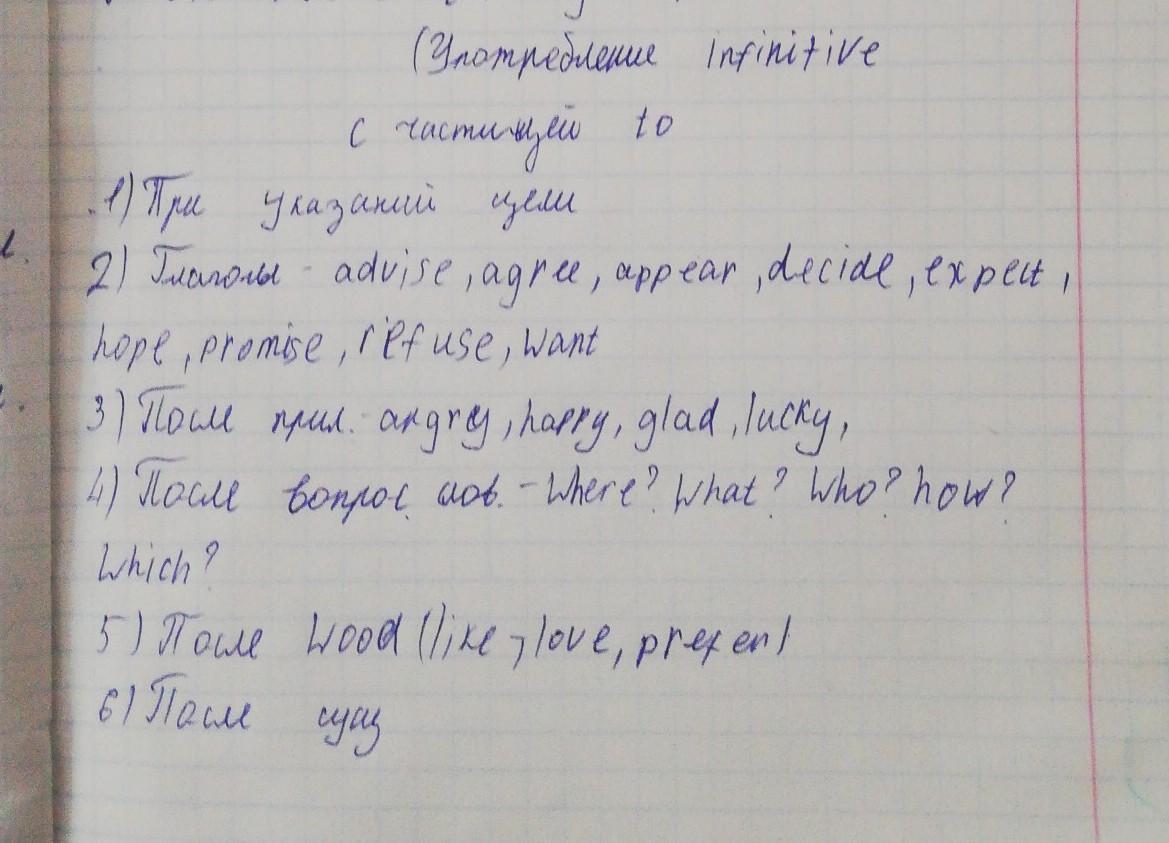 (Употребление infinitive
с частицей to
1) При указаний цели
2) Глаголы - advise, agree, appear, decide, expect,
hope, promise, refuse, want
3) После прил. angry, happy, glad, lucky,
4) После вопрос. слов. - Where? What? Who? how?
Which?
5) После Wood (like, love, prefer)
6) После сущ